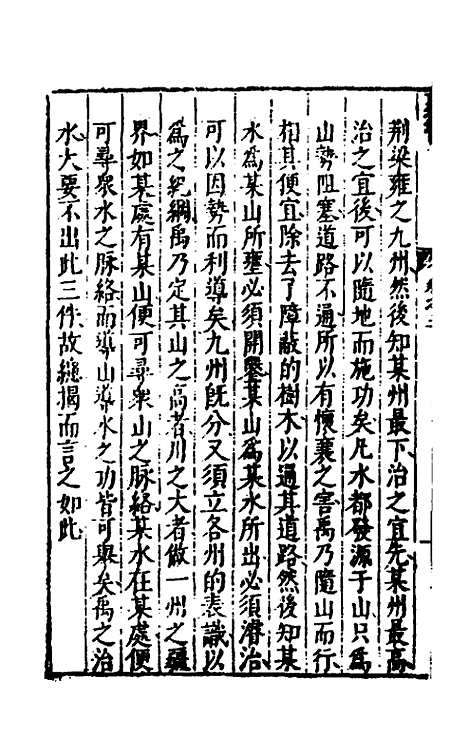 荆梁雍之九州然後知某州最下治之宜先某州最高
治之宜後可以隨地而施功矣凡水都發源于山只爲
山勢阻塞道路不通所以有懷襄之害禹乃隨山而行
相其便宜除去了障蔽的樹木以通其道路然後知某
水為某山所壅必須開鑿某山為某水所出必須濬治
可以因勢而利導矣九州既分又須立各州的表識以
爲之紀綱禹乃定其山之高者川之大者做一州之疆
界如某處有某山便可尋衆山之脉絡某水在某處便
可尋衆水之脉絡而導山導水之功皆可舉矣禹之治
水大要不出此三件故總揭而言之如此